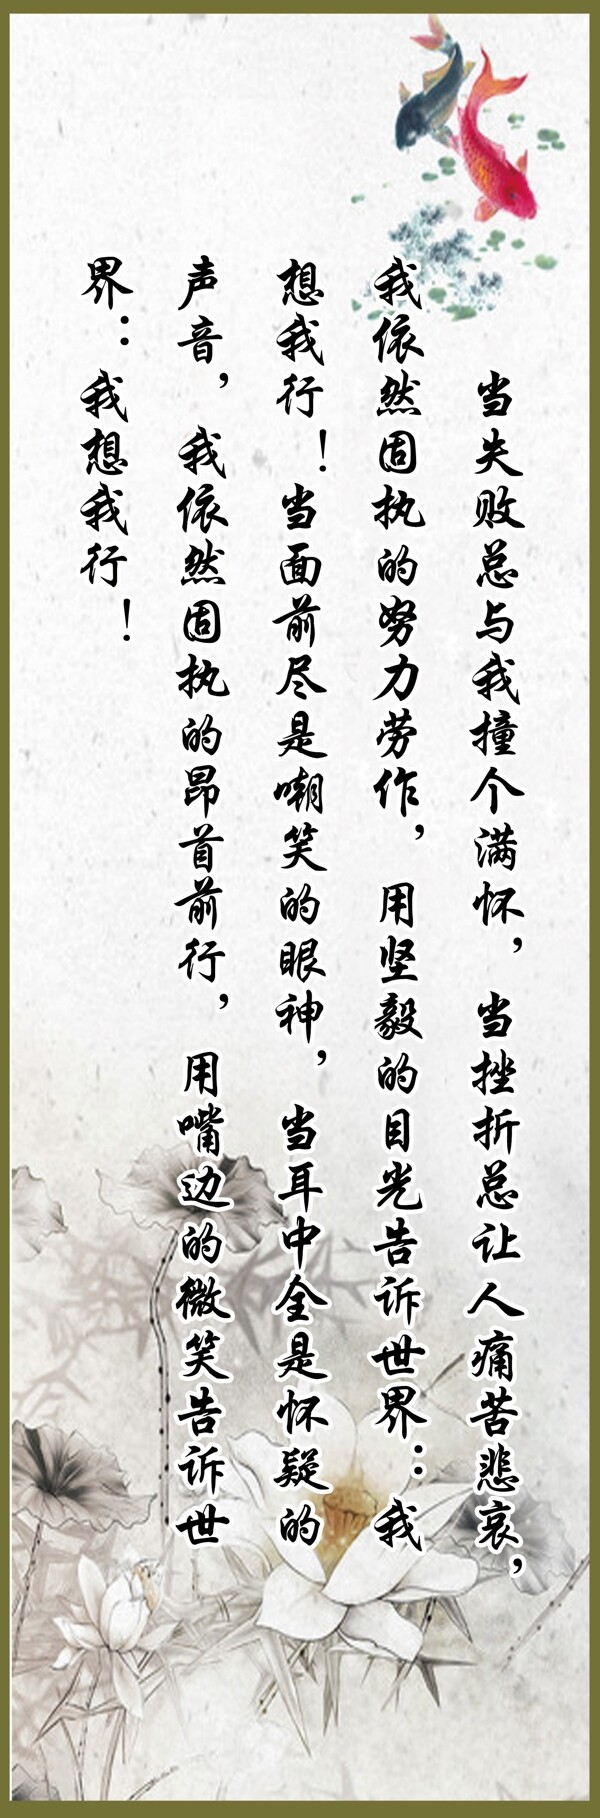 当失败总与我撞个满怀，当挫折总让人痛苦悲哀，
我依然固执的努力劳作，用坚毅的目光告诉世界：我
想我行！当面前尽是嘲笑的眼神，当耳中全是怀疑的
声音，我依然固执的昂首前行，用嘴边的微笑告诉世
界：我想我行！